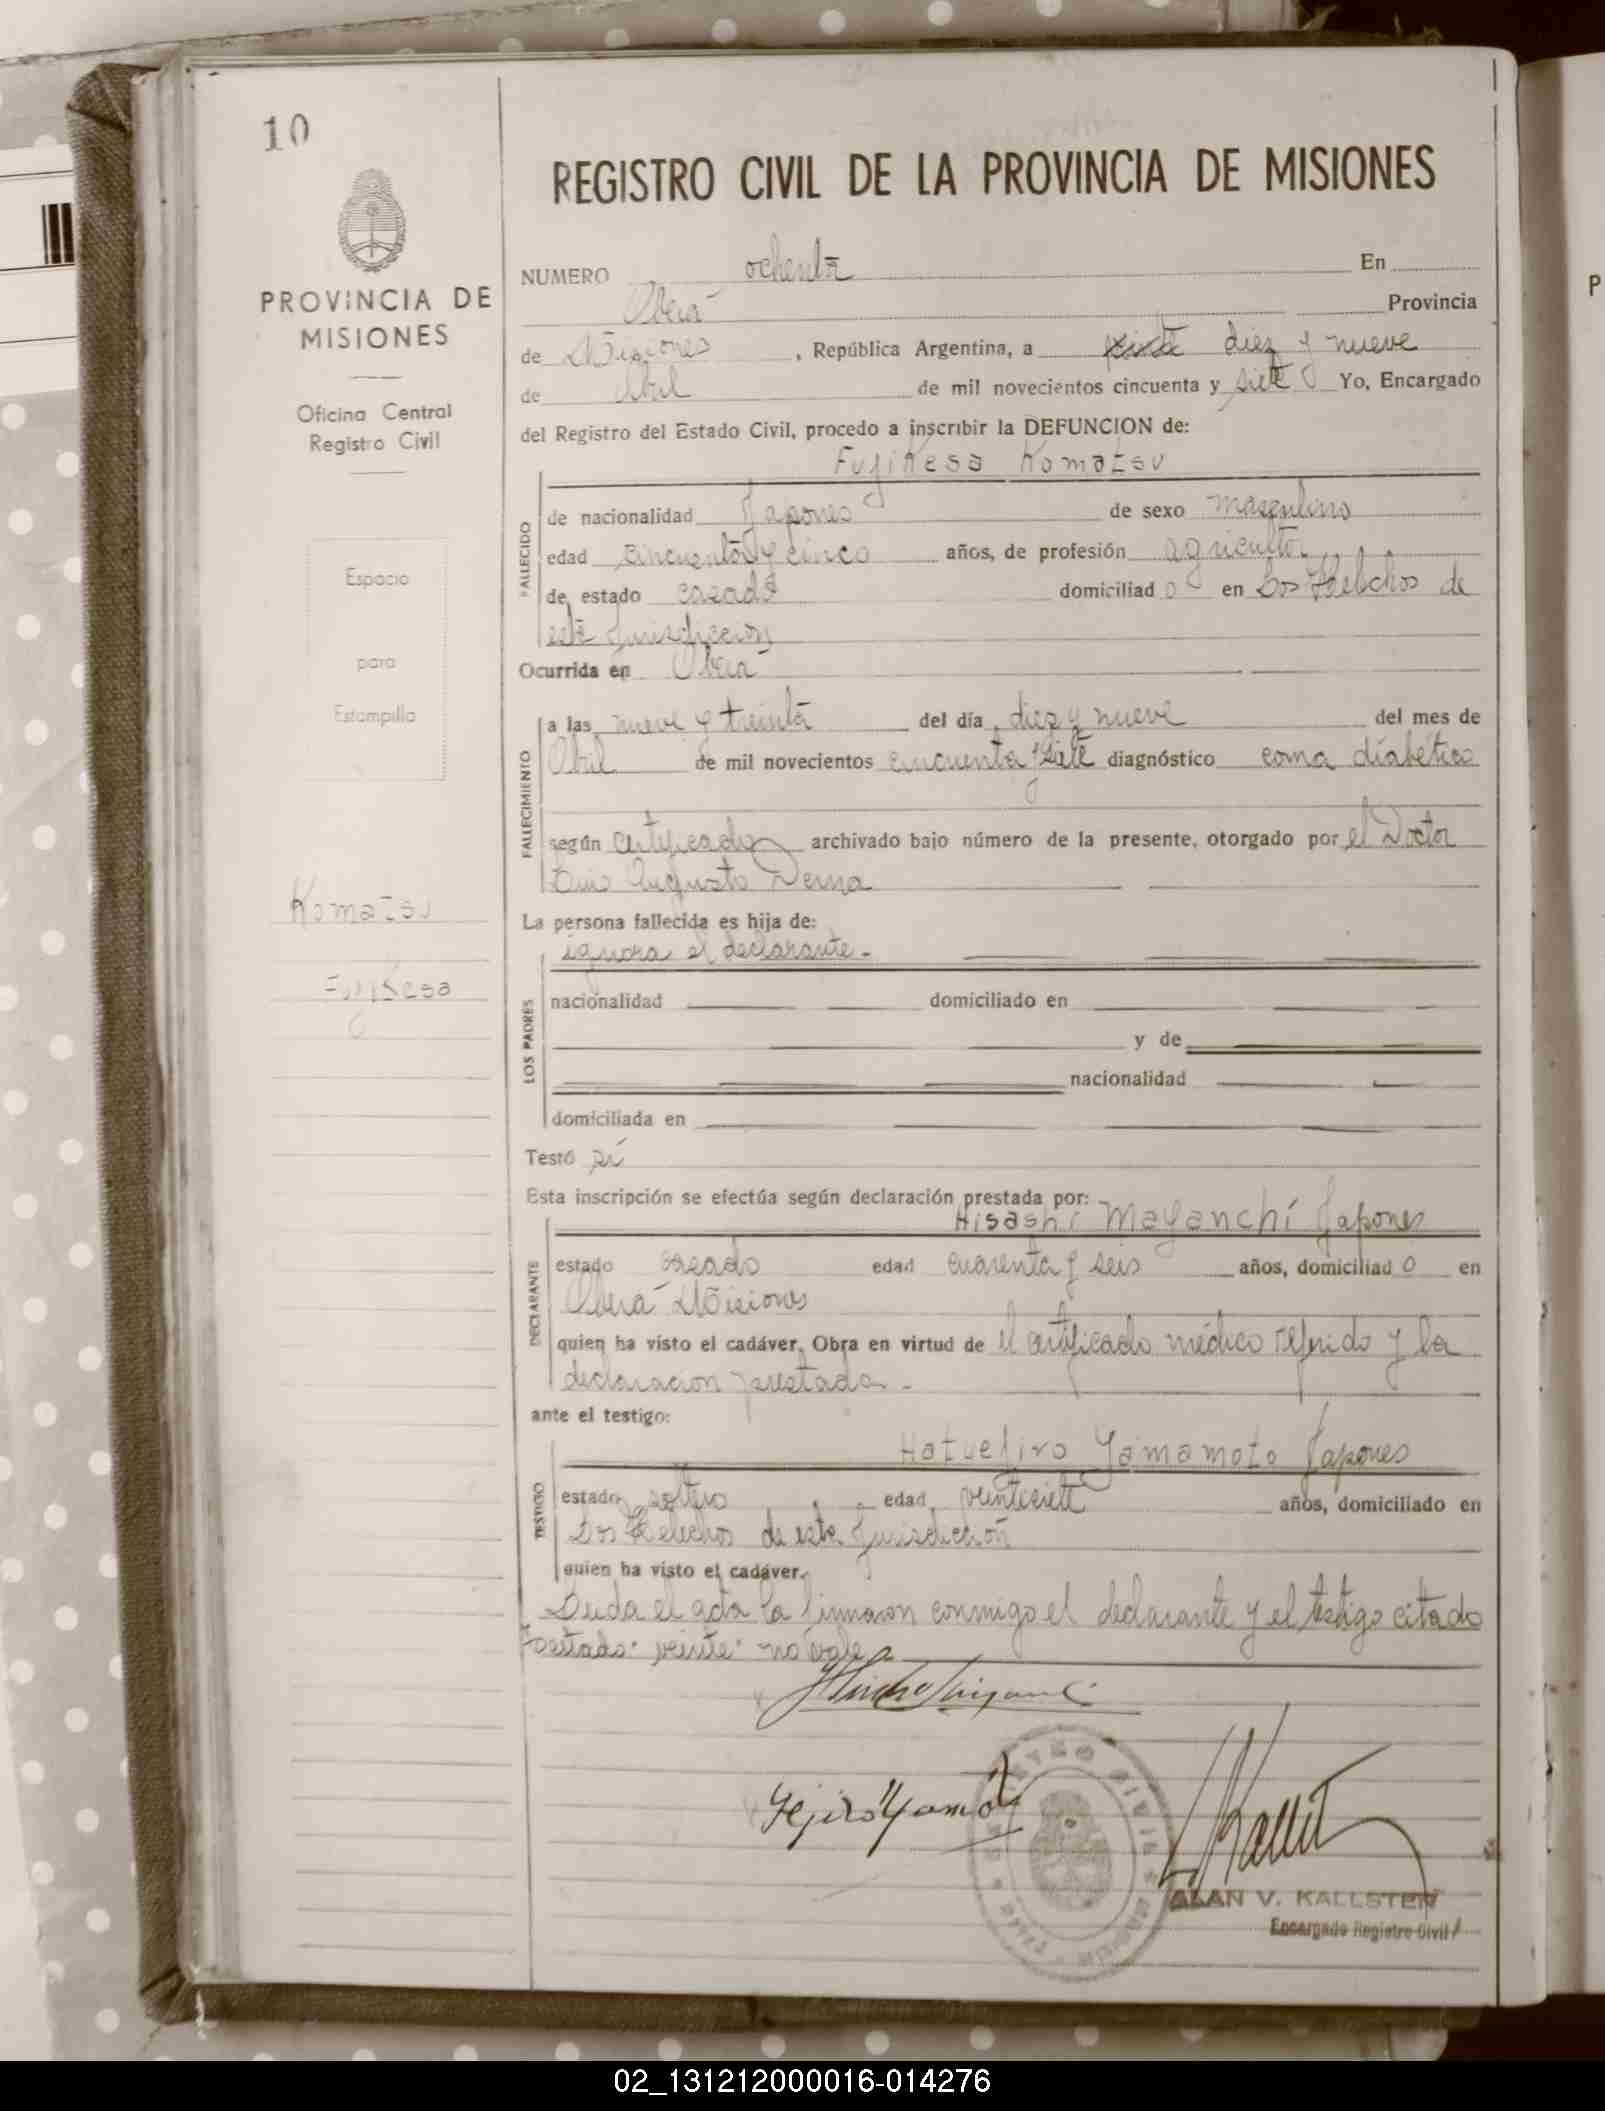 10
PROVINCIA DE
MISIONES
Oficina Central
Registro Civil
Espacio
para
Estampilla
Komatsu
Fujikesa
REGISTRO CIVIL DE LA PROVINCIA DE MISIONES
NUMERO ochenta En
Oberá Provincia
de Misiones, República Argentina, a veinte diez y nueve
de Abril de mil novecientos cincuenta y siete Yo, Encargado
del Registro del Estado Civil, procedo a inscribir la DEFUNCION de:
Fujikesa Komatsu
FALLECIDO
de nacionalidad Japones de sexo masculino
edad cincuenta y cinco años, de profesión agricultor
de estado casado domiciliado en Los Helechos de
esta Jurisdiccion
Ocurrida en Oberá
FALLECIMIENTO
a las nueve y treinta del día diez y nueve del mes de
Abril de mil novecientos cincuenta y siete diagnóstico coma diabético
según certificado archivado bajo número de la presente, otorgado por el Doctor
Luis Augusto Derna
La persona fallecida es hija de:
ignora el declarante.-
LOS PADRES
nacionalidad domiciliado en
y de
nacionalidad
domiciliada en
Testó si
Esta inscripción se efectúa según declaración prestada por:
Hisashi Mayanchi Japones
DECLARANTE
estado casado edad cuarenta y seis años, domiciliado en
Oberá Misiones
quien ha visto el cadáver. Obra en virtud de el certificado médico referido y la
declaracion prestada.-
ante el testigo:
Hatuejiro Yamamoto Japones
TESTIGO
estado soltero edad veintesiete años, domiciliado en
Los Helechos de esta Jurisdicción
quien ha visto el cadáver.
Leida el acta la firmaron conmigo el declarante y el testigo citado
Testado: veinte: no vale
ALAN V. KALLSTEN
Encargado Registro Civil
02_131212000016-014276